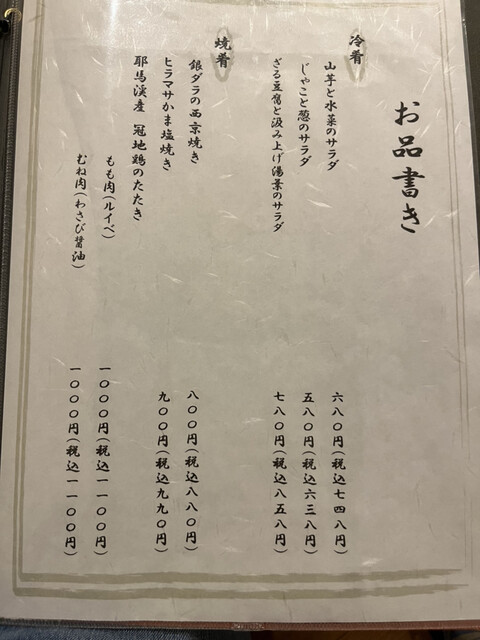 お品書き
冷肴
山芋と水菜のサラダ 六八〇円(税込七四八円)
じゃこと葱のサラダ 五八〇円(税込六三八円)
ざる豆腐と汲み上げ湯葉のサラダ 七八〇円(税込八五八円)
焼肴
銀ダラの西京焼き 八〇〇円(税込八八〇円)
ヒラマサかま塩焼き 九〇〇円(税込九九〇円)
耶馬渓産 冠地鶏のたたき
もも肉(ルイベ) 一〇〇〇円(税込一一〇〇円)
むね肉(わさび醤油) 一〇〇〇円(税込一一〇〇円)